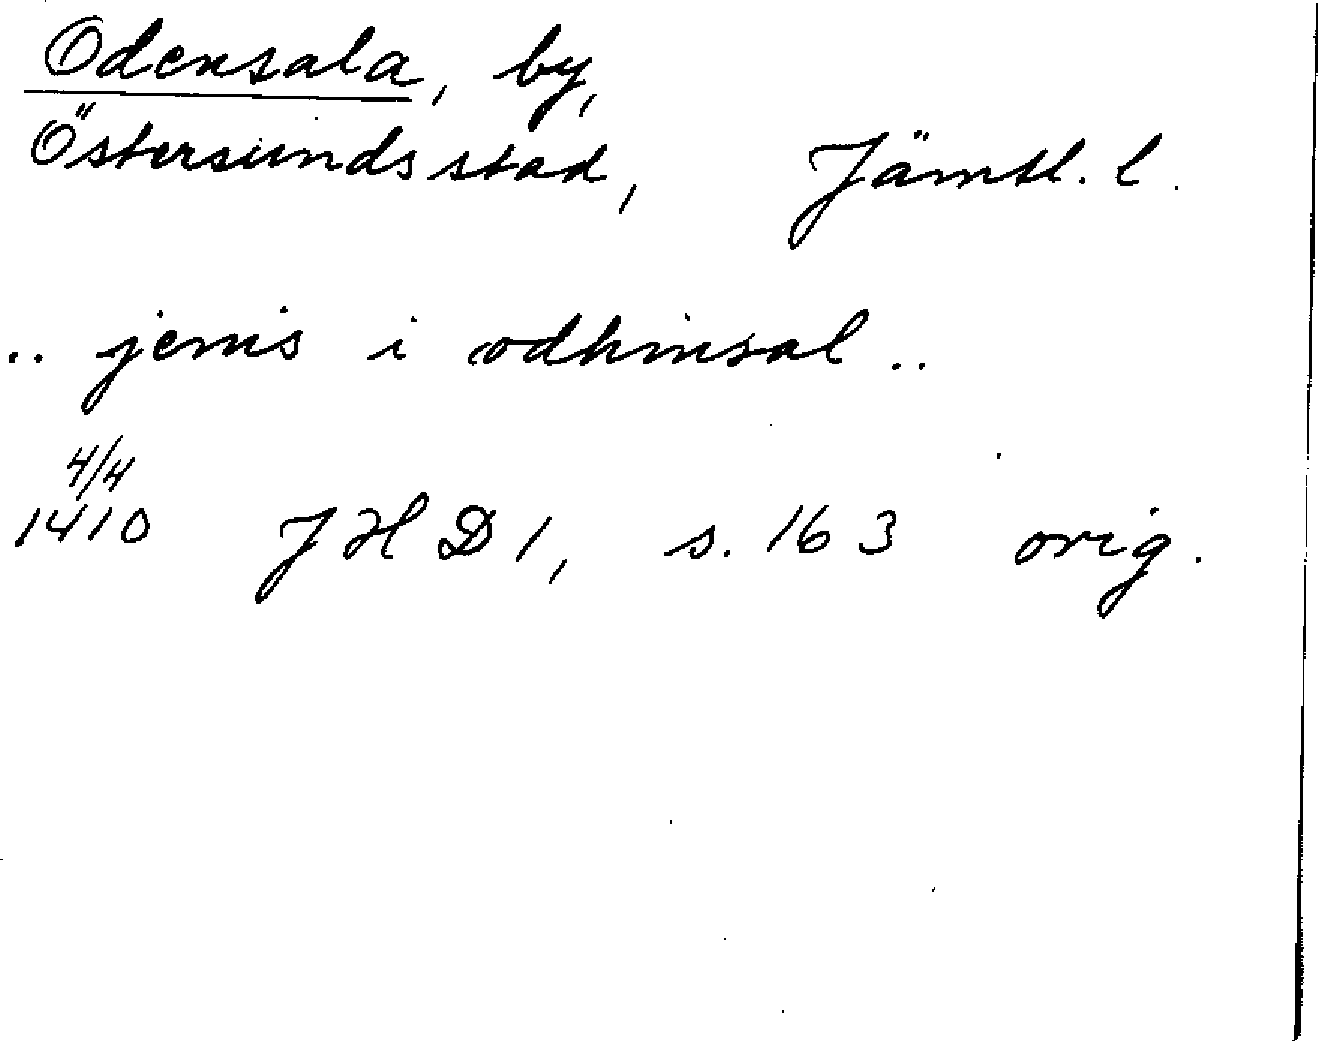 Odensala, by,
Östersunds stad, Jämtl. l.
.. jenis i odhinsal ..
4/4
1410 JHD 1, s. 163 orig.